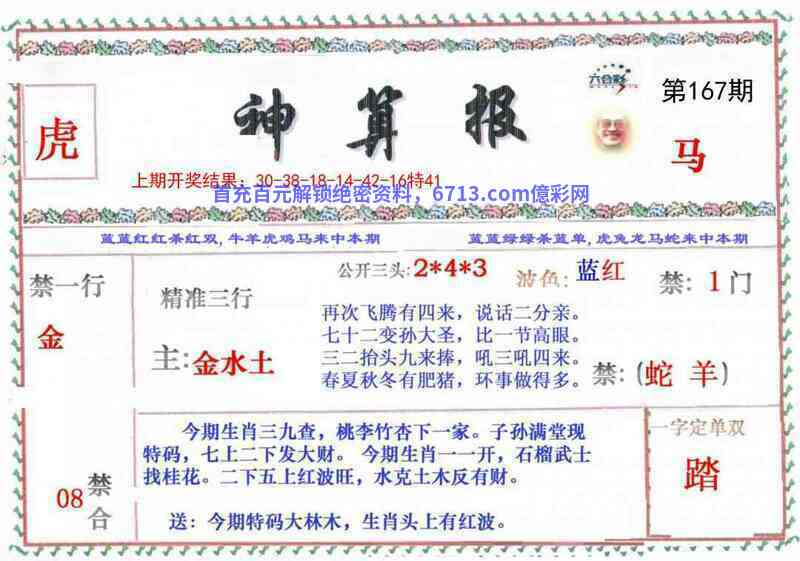 六合彩
第167期
神算报
虎
马
上期开奖结果：30-38-18-14-42-16特41
首充百元解锁绝密资料，6713.com億彩网
蓝蓝红红杀红双, 牛羊虎鸡马来中本期
蓝蓝绿绿杀蓝单, 虎兔龙马蛇来中本期
禁一行
金
精准三行
主:金水土
公开三头:2*4*3
波色:蓝红
禁:1门
再次飞腾有四来，说话二分亲。
七十二变孙大圣，比一节高眼。
三二抬头九来捧，吼三吼四来。
春夏秋冬有肥猪，环事做得多。
禁:(蛇 羊)
08
禁合
今期生肖三九查，桃李竹杏下一家。子孙满堂现
特码，七上二下发大财。 今期生肖一一开，石榴武士
找桂花。二下五上红波旺，水克土木反有财。
送：今期特码大林木，生肖头上有红波。
一字定单双
踏